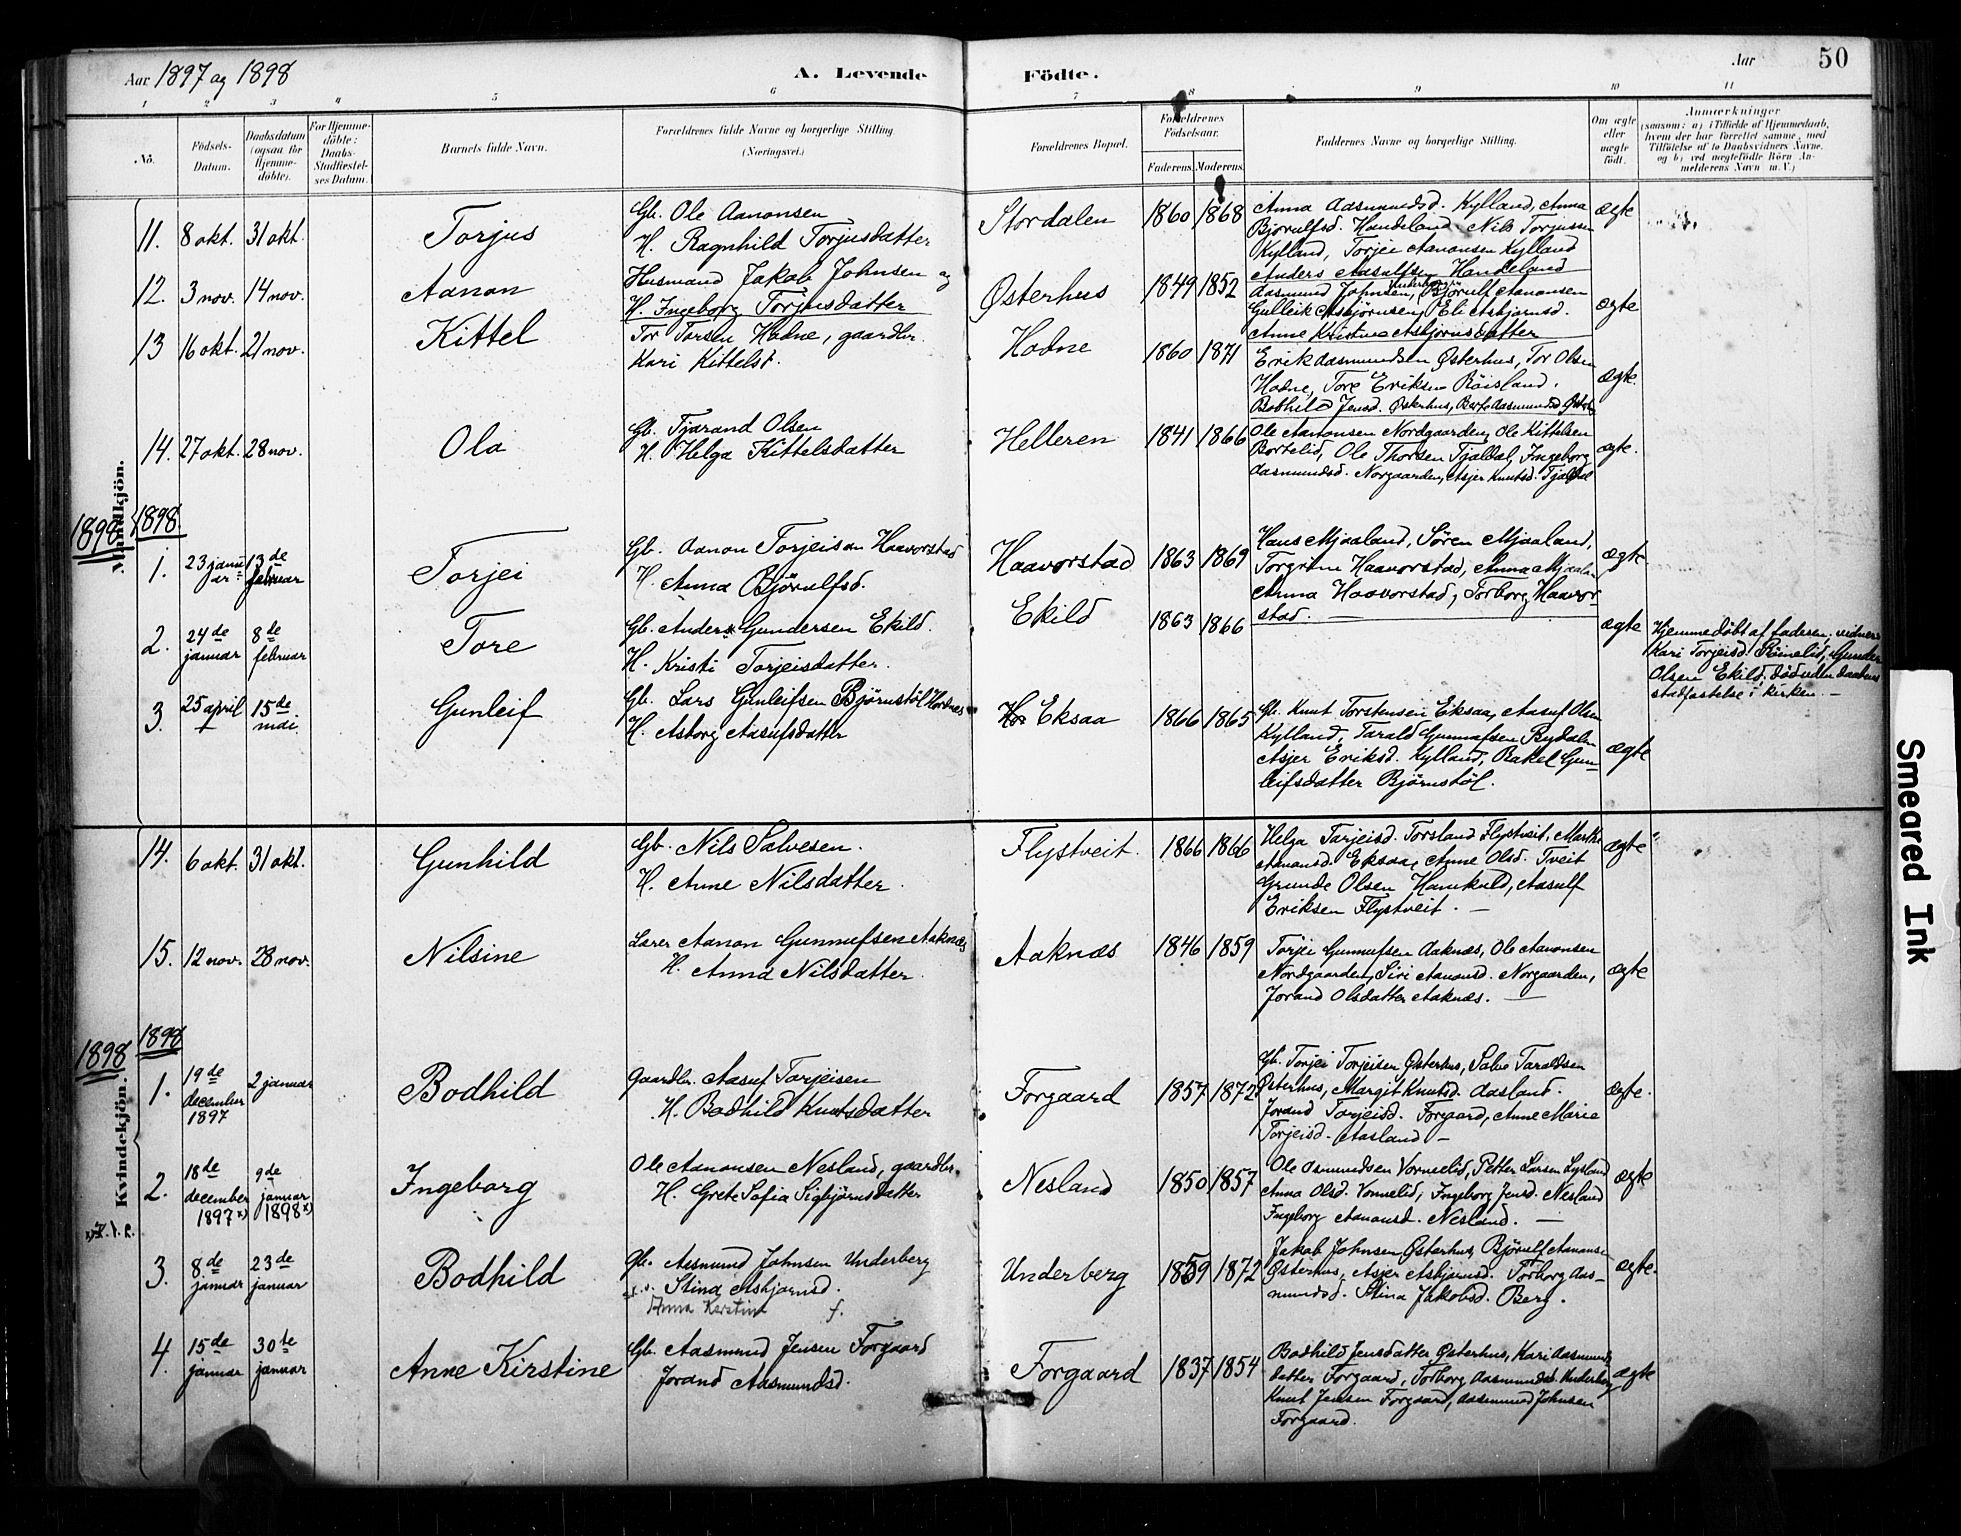 Aar 1897 og 1898
A. Levende Födte.
Aar 50
1 2 3 4 5 6 7 8 9 10 11
No.
Födsels-Datum.
Daabsdatum (ogsaa for Hjemme-döbte).
For Hjemme-döbte: Daabs-Stadfæstel-ses Datum.
Barnets fulde Navn.
Forældrenes fulde Navne og borgerlige Stilling. (Næringsvei.)
Forældrenes Bopæl.
Forældrenes Födselsaar.
Faderens. Moderens.
Faddernes Navne og borgerlige Stilling.
Om ægte eller uægte födt.
Anmærkninger
(saasom: a) i Tilfælde af Hjemmedaab,
hvem der har forrettet samme, med
Tilföielse af to Daabsvidners Navne,
og b) ved uægtefödte Börn An-
melderens Navn m.V.)
Mandkjön.
11. 8 okt. 31 okt. Torjus
Gb. Ole Aanonsen
H. Ragnhild Torjusdatter
Stordalen 1860 1868
Anna Aasmundsd. Kylland, Anna
Bjorulfsd. Handeland, Nils Torjussen
Kylland, Torjei Aanonsen Kylland
Anders Aasulfsen Handeland
ægte
12. 3 nov. 14 nov. Aanon
Husmand Jakob Johnsen og
H. Ingeborg Torjusdatter
Østerhus 1849 1852
Aasmund Johnsen, Underberg, Bjørulf Aanonsen
Gulleik Asbjörnsen, Eli Asbjørnsd.
Anne Kristine Asbjörnsdatter
ægte
13 16 okt. 21 nov. Kittel
Tor Torsen Hodne, gaardbr.
Kari Kittelsd.
Hodne 1860 1871
Erik Aasmundsen Østerhus, Tor Olsen
Hodne, Tore Eriksen Röisland.
Bodhild Jensd. Østerhus, Berte Aasmundsd
ægte.
14. 27 okt. 28 nov. Ola
Gb. Tjærand Olsen
H. Helga Kittelsdatter
Helleren 1841 1866
Ole Aanonsen Nordgaarden, Ole Kittelsen
Bortelid, Ole Thorsen Tjaldal, Ingeborg
Aasmundsd. Norgaarden, Asjer Knutsd. Tjaldal
ægte.
1898 1898.
1. 23 januar 13de februar Torjei
Gb. Aanon Torjeisen Haavorstad
H. Anna Bjørulfsd.
Haavorstad 1863 1869
Hans Mjaaland, Søren Mjaaland,
Torgrim Haavorstad, Anna Mjaaland
Anna Haavorstad, Torborg Haavor-
stad. —
ægte
2. 24de januar 8de februar Tore
Gb. Anders Gundersen Ekild.
H. Kristi Torjeisdatter.
Ekild 1863 1866
ægte
Hjemmedöbt af faderen; vidner
Kari Torjeisd. Röinelid, Gunder
Olsen Ekild, död uden daabens
stadfæstelse i kirken. —
3. 25 april † 15de mai. Gunleif
Gb. Lars Gunleifsen Björnstöl Hordnes
H. Asborg Aasufsdatter
Eksaa 1866 1865
Gb. Knut Torstensen Eksaa, Aasuf Olsen
Kylland, Tarald Gunnufsen Rydalen
Asjer Eriksd. Kylland, Rakel Gun-
leifsdatter Björnstöl.
ægte
Kvindekjön.
14. 6 okt. 31 okt. Gunhild
Gb. Nils Salvesen.
H. Anne Nilsdatter.
Flystveit. 1866 1866
Helga Tarjeisd. Torsland Flystveit, Marthe
Aanonsd. Eksaa, Anne Olsd. Tveit
Grunde Olsen Hamkold, Aasulf
Eriksen Flystveit. —
ægte
15. 12 nov. 28 nov. Nilsine
Lærer Aanon Gunnufsen Aaknæs
H. Anna Nilsdatter.
Aaknæs 1846 1859
Torjei Gunnufsen Aaknæs, Ole Aanonsen
Nordgaarden, Siri Aanonsd. Norgaarden,
Jorand Olsdatter Aaknæs. —
ægte
1898 1898
1. 19de december 1897 2 januar Bodhild
Gaardbr. Aasuf Torjeisen
H. Bodhild Knutsdatter
Forgaard 1857 1872
Gb. Torjei Torjeisen Østerhus, Salve Taraldsen
Østerhus, Margit Knutsd. Aasland.
Jorand Torjeisd. Forgaard, Anne Marie
Torjeisd. Aasland —
ægte.
2. 18de december 1897 x) 9de januar 1898 x) Ingeborg
Ole Aanonsen Nesland, gaardbr.
H. Grete Sofia Sigbjørnsdatter
Nesland 1850 1857
Ole Asmundsen Vonnelid, Petter Larsen Lysland
Anna Olsd. Vonnelid, Ingeborg Jensd. Nesland
Ingeborg Aanonsd. Nesland. —
ægte
3. 8de januar 23de januar Bodhild
Gb. Aasmund Johnsen Underberg
Stina Asbjørnsd.
Anna Kerstine f.
Underberg 1859 1872
Jakob Johnsen Østerhus, Bjørulf Aanonse
Østerhus, Asjer Asbjørnsd. Torborg Aas-
mundsd. Stina Jakobsd. Berg.
ægte.
4. 15de januar 30te januar Anne Kirstine
Gb. Aasmund Jensen Forgaard
Jorand Aasmundsd.
Forgaard 1837 1854
Bodhild Jensdatter Østerhus, Kari Aasmunds
datter Forgaard, Torborg Aasmundsd. Underberg
Knut Jensen Forgaard, Aasmund Johnsen
Forgaard.
ægte
Smeared Ink